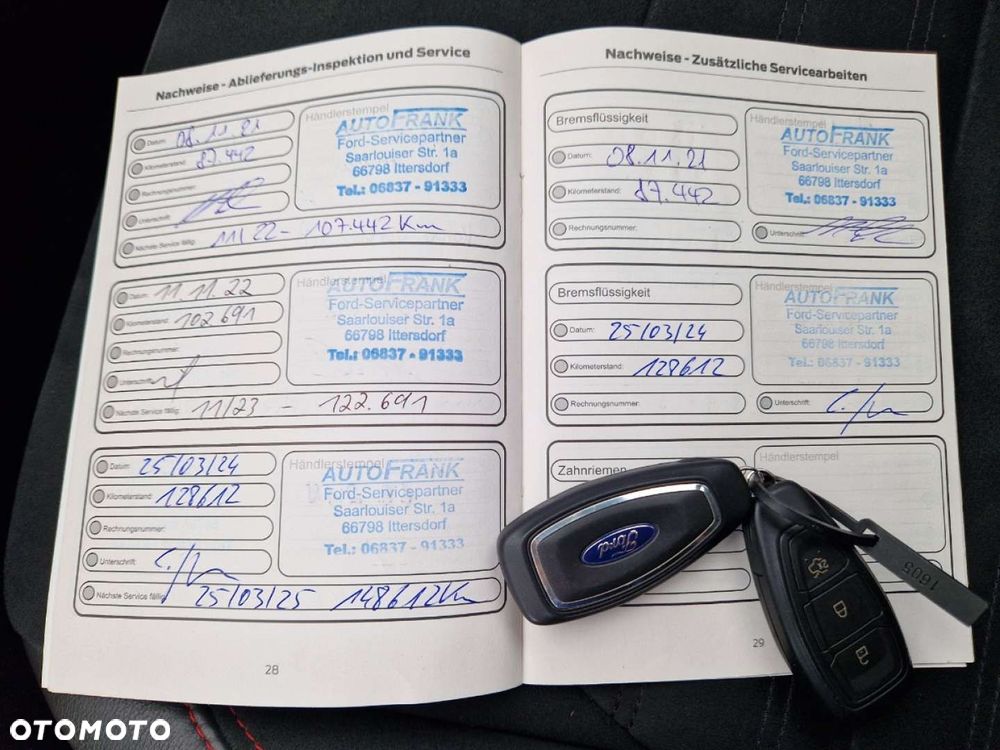 Nachweise - Ablieferungs-Inspektion und Service
Datum: 08.11.21
Kilometerstand: 87.442
Rechnungsnummer:
Unterschrift:
Nächste Service fällig: 11/22 - 107.442 Km
Händlerstempel
AUTOFRANK
Ford-Servicepartner
Saarlouiser Str. 1a
66798 Ittersdorf
Tel.: 06837 - 91333
Datum: 11.11.22
Kilometerstand: 102691
Rechnungsnummer:
Unterschrift:
Nächste Service fällig: 11/23 - 122.691
Händlerstempel
AUTOFRANK
Ford-Servicepartner
Saarlouiser Str. 1a
66798 Ittersdorf
Tel.: 06837 - 91333
Datum: 25/03/24
Kilometerstand: 128612
Rechnungsnummer:
Unterschrift:
Nächste Service fällig: 25/03/25 148612 Km
Händlerstempel
AUTOFRANK
Ford-Servicepartner
Saarlouiser Str. 1a
66798 Ittersdorf
Tel.: 06837 - 91333
28
Nachweise - Zusätzliche Servicearbeiten
Bremsflüssigkeit
Datum: 08.11.21
Kilometerstand: 87.442
Rechnungsnummer:
Unterschrift:
Händlerstempel
AUTOFRANK
Ford-Servicepartner
Saarlouiser Str. 1a
66798 Ittersdorf
Tel.: 06837 - 91333
Bremsflüssigkeit
Datum: 25/03/24
Kilometerstand: 128612
Rechnungsnummer:
Unterschrift:
Händlerstempel
AUTOFRANK
Ford-Servicepartner
Saarlouiser Str. 1a
66798 Ittersdorf
Tel.: 06837 - 91333
Zahnriemen
Händlerstempel
Ford
1605
29
OTOMOTO